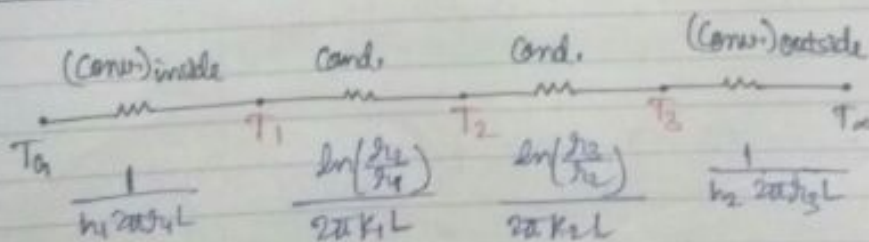 (Conv.)inside Cond. Cond. (Conv.)outside
T₁ T₂ T₃ T∞
Ta
1/(h₁ 2πr₁L) ln(r₂/r₁)/(2πK₁L) ln(r₃/r₂)/(2πK₂L) 1/(h₂ 2πr₃L)